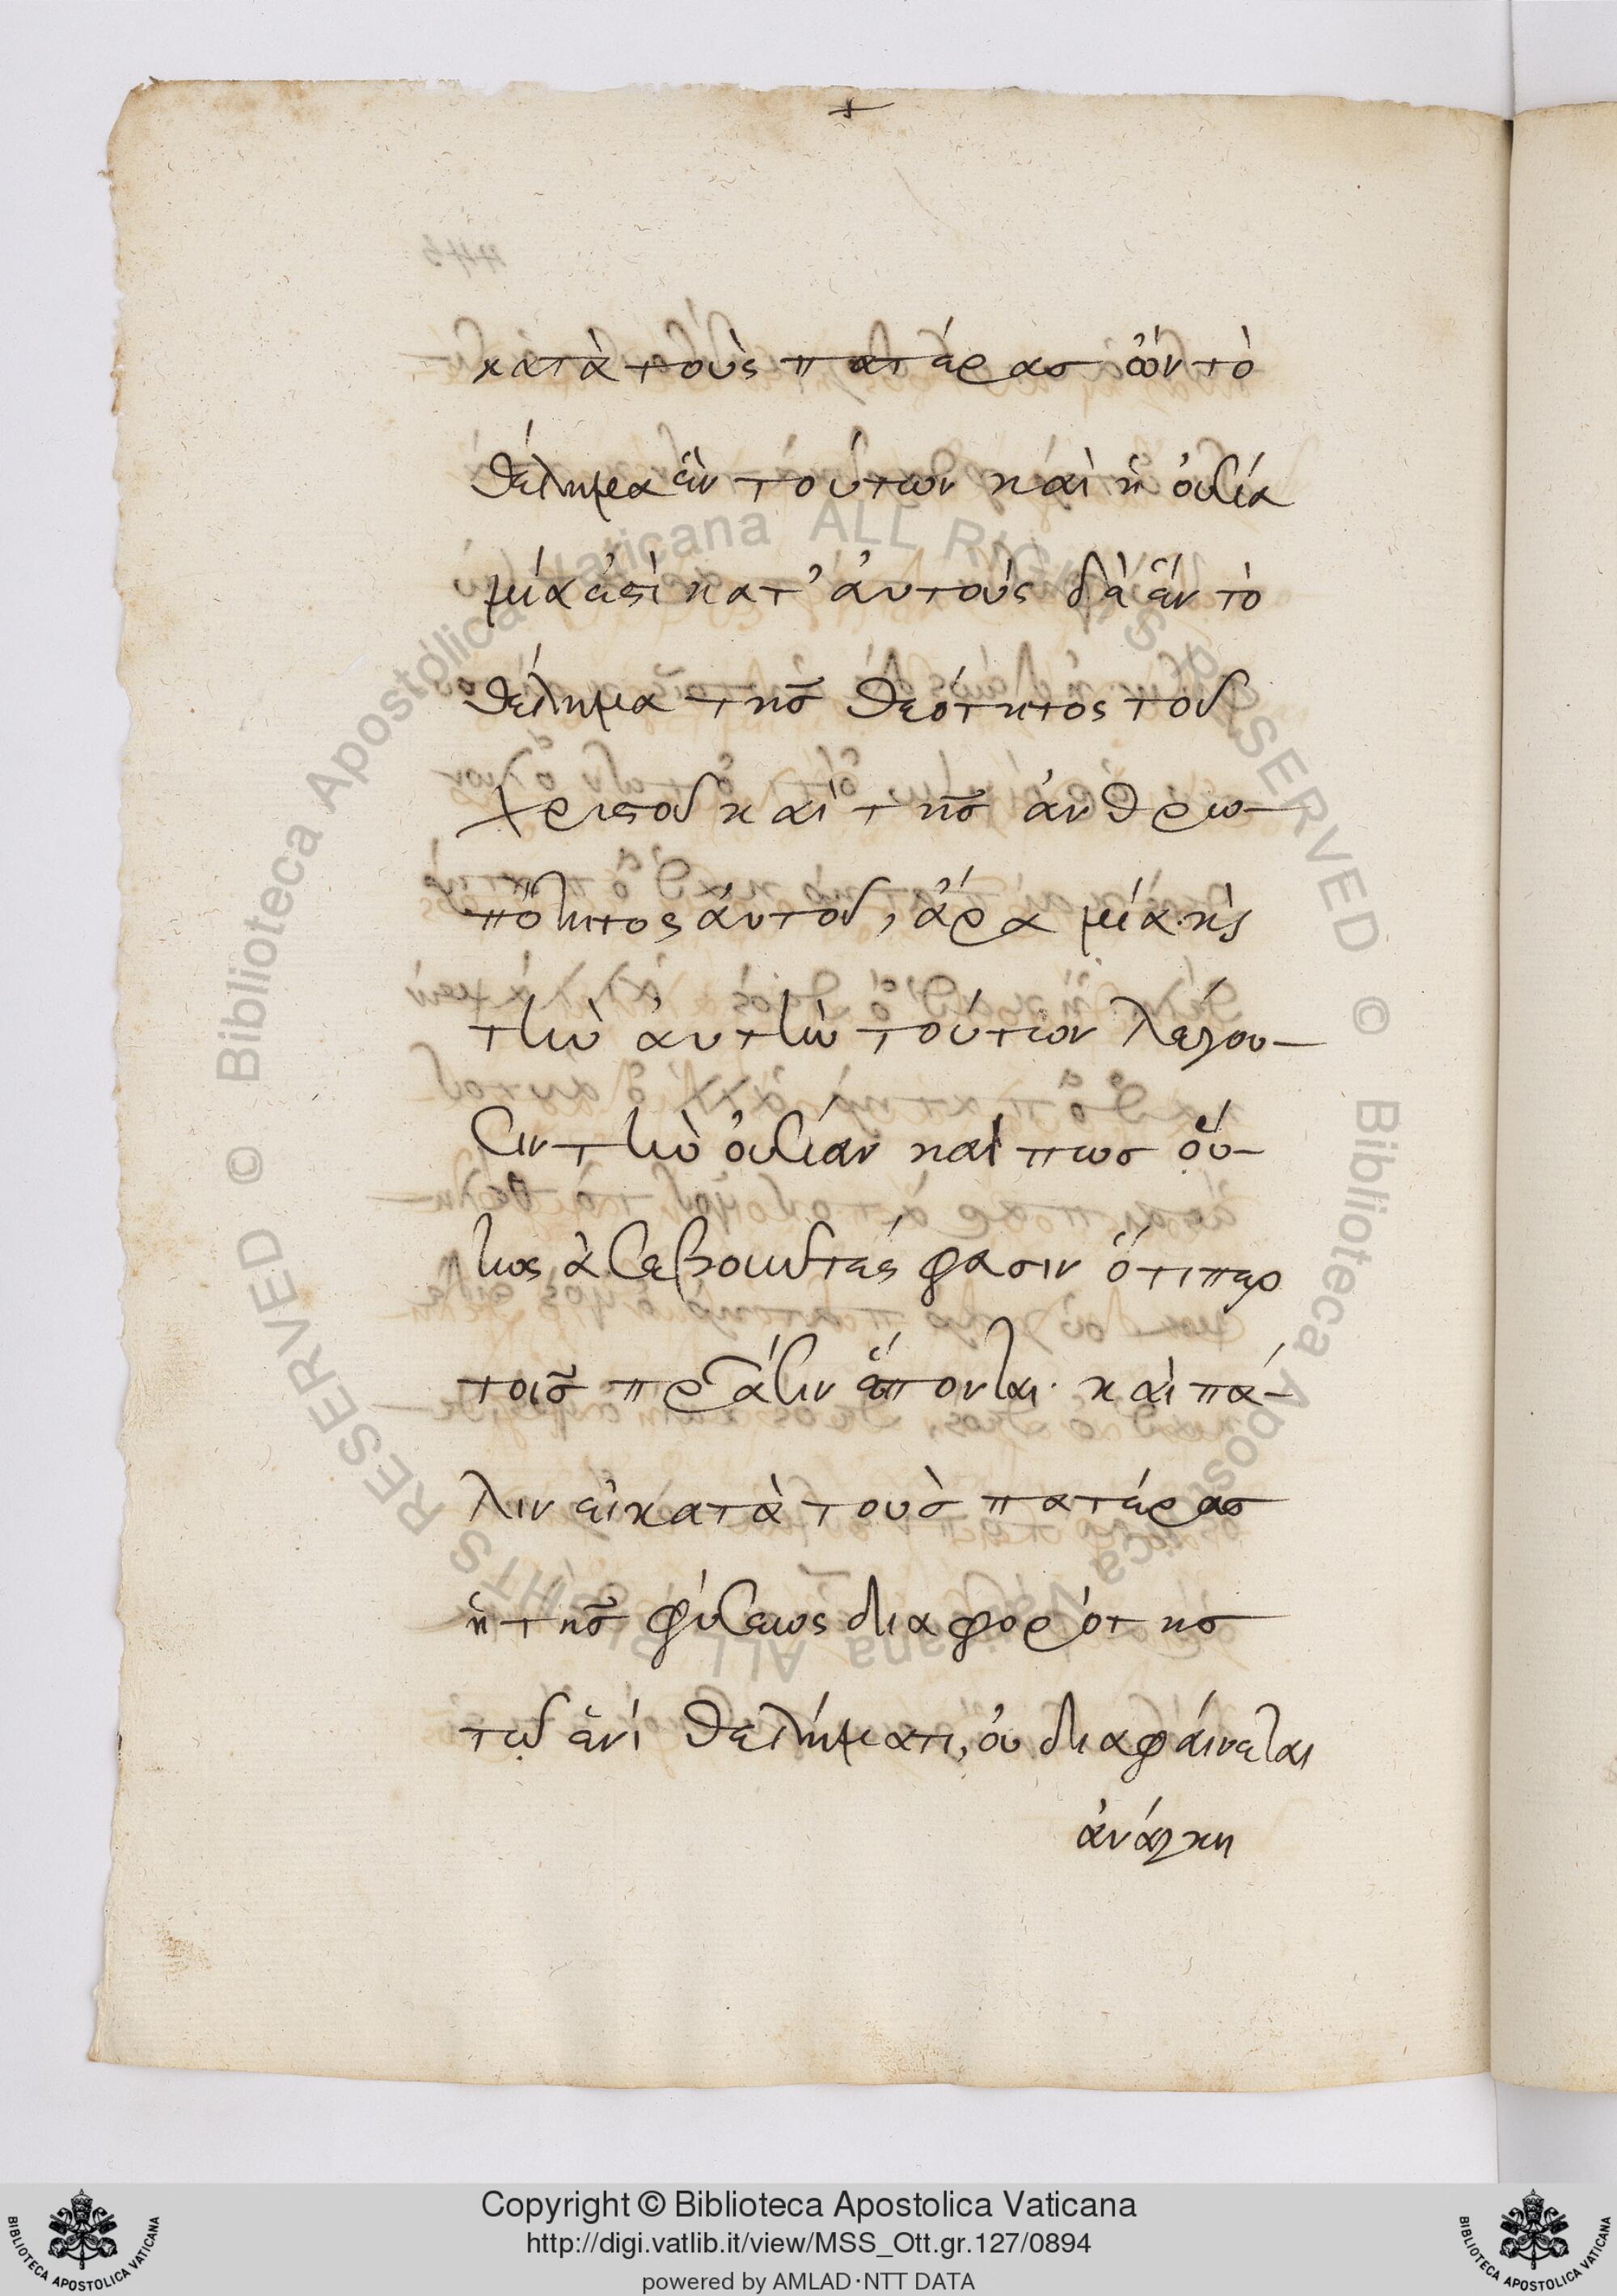 +
κατὰ τοὺς πατέρας ὧν τὸ
θέλημα ἓν τούτων καὶ ἡ ουσία
μία ἐστὶ κατ' αὐτοὺς δὲ ἓν τὸ
θέλημα τῆς θεότητος τοῦ
χριστοῦ καὶ τῆς ἀνθρω-
πότητος αὐτοῦ, ἄρα μίαν κỳ
τὴν ἀυτὴν τούτων λέγου-
σιν τὴν ὀυσίαν καὶ πως οὕ-
τως ἀσεβοῦντές φασιν ὅτιπερ
τοῖς πρ̃άσιν ἕπονται· καὶ πά-
λιν εἰ κατὰ τοὺς πατέρας
ἡ τῆς φύσεως διαφορότης
τῷ ἑνὶ θελήματι, οὐ διαφαίνεται
ἀνάγκη
Copyright © Biblioteca Apostolica Vaticana
http://digi.vatlib.it/view/MSS_Ott.gr.127/0894
powered by AMLAD·NTT DATA